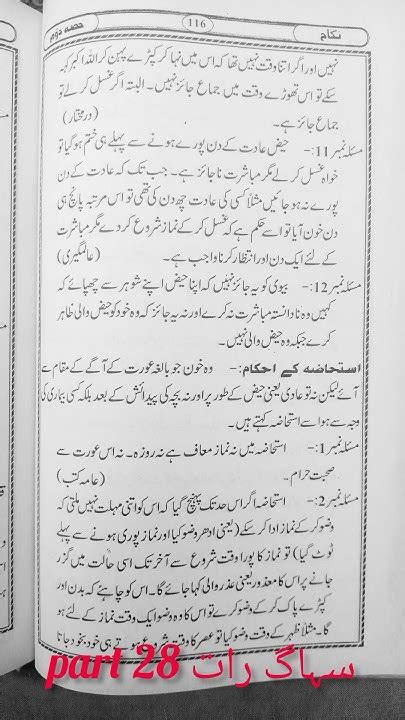 نکاح
116
حصہ دوم
نہیں اور اگر اتنا وقت نہیں تھا کہ اس میں نہا کر کپڑے پہن کر اللہ اکبر کہہ
سکے تو اس تھوڑے وقت میں جماع جائز نہیں۔ البتہ اگر غسل کر لے تو
جماع جائز ہے۔ (درمختار)
مسئلہ نمبر 11:- حیض عادت کے دن پورے ہونے سے پہلے ہی ختم ہو گیا تو
خواہ غسل کر لے مگر مباشرت ناجائز ہے۔ جب تک کہ عادت کے دن
پورے نہ ہو جائیں مثلاً کسی کی عادت چھ دن کی تھی تو اس مرتبہ پانچ ہی
دن خون آیا تو اسے حکم ہے کہ غسل کر کے نماز شروع کر دے مگر مباشرت
کے لئے ایک دن اور انتظار کرنا واجب ہے۔ (عالمگیری)
مسئلہ نمبر 12:- بیوی کو یہ جائز نہیں کہ اپنا حیض اپنے شوہر سے چھپائے کہ
کہیں وہ نادانستہ مباشرت نہ کرے اور نہ یہ جائز کہ وہ خود کو حیض والی ظاہر
کرے جبکہ وہ حیض والی نہیں۔
استحاضہ کے احکام:- وہ خون جو بالغہ عورت کے آگے کے مقام سے
آئے لیکن نہ تو عادی یعنی حیض کے طور پر اور نہ بچہ کی پیدائش کے بعد بلکہ کسی بیماری کی
وجہ سے ہو اسے استحاضہ کہتے ہیں۔
مسئلہ نمبر 1:- استحاضہ میں نہ نماز معاف ہے نہ روزہ۔ نہ اس عورت سے
صحبت حرام۔ (عامہ کتب)
مسئلہ نمبر 2:- استحاضہ اگر اس حد تک پہنچ گیا کہ اس کو اتنی مہلت نہیں ملتی کہ
وضو کر کے نماز ادا کر سکے (یعنی ادھر وضو کیا اور نماز پوری ہونے سے پہلے
ٹوٹ گیا) تو نماز کا پورا وقت شروع سے آخر تک اسی حالت میں گزر
جانے پر اس کا معذور یعنی عذر والی کہا جائے گا۔ اس کو چاہئے کہ بدن اور
کپڑے پاک کر کے وضو کرے تو اس کا وہ وضو ایک وقت نماز کے لئے ہو
گا۔ مثلاً ظہر کے وقت وضو کیا تو عصر کا وقت شروع ہوتے ہی خود بخود جاتا
سہاگ رات part 28